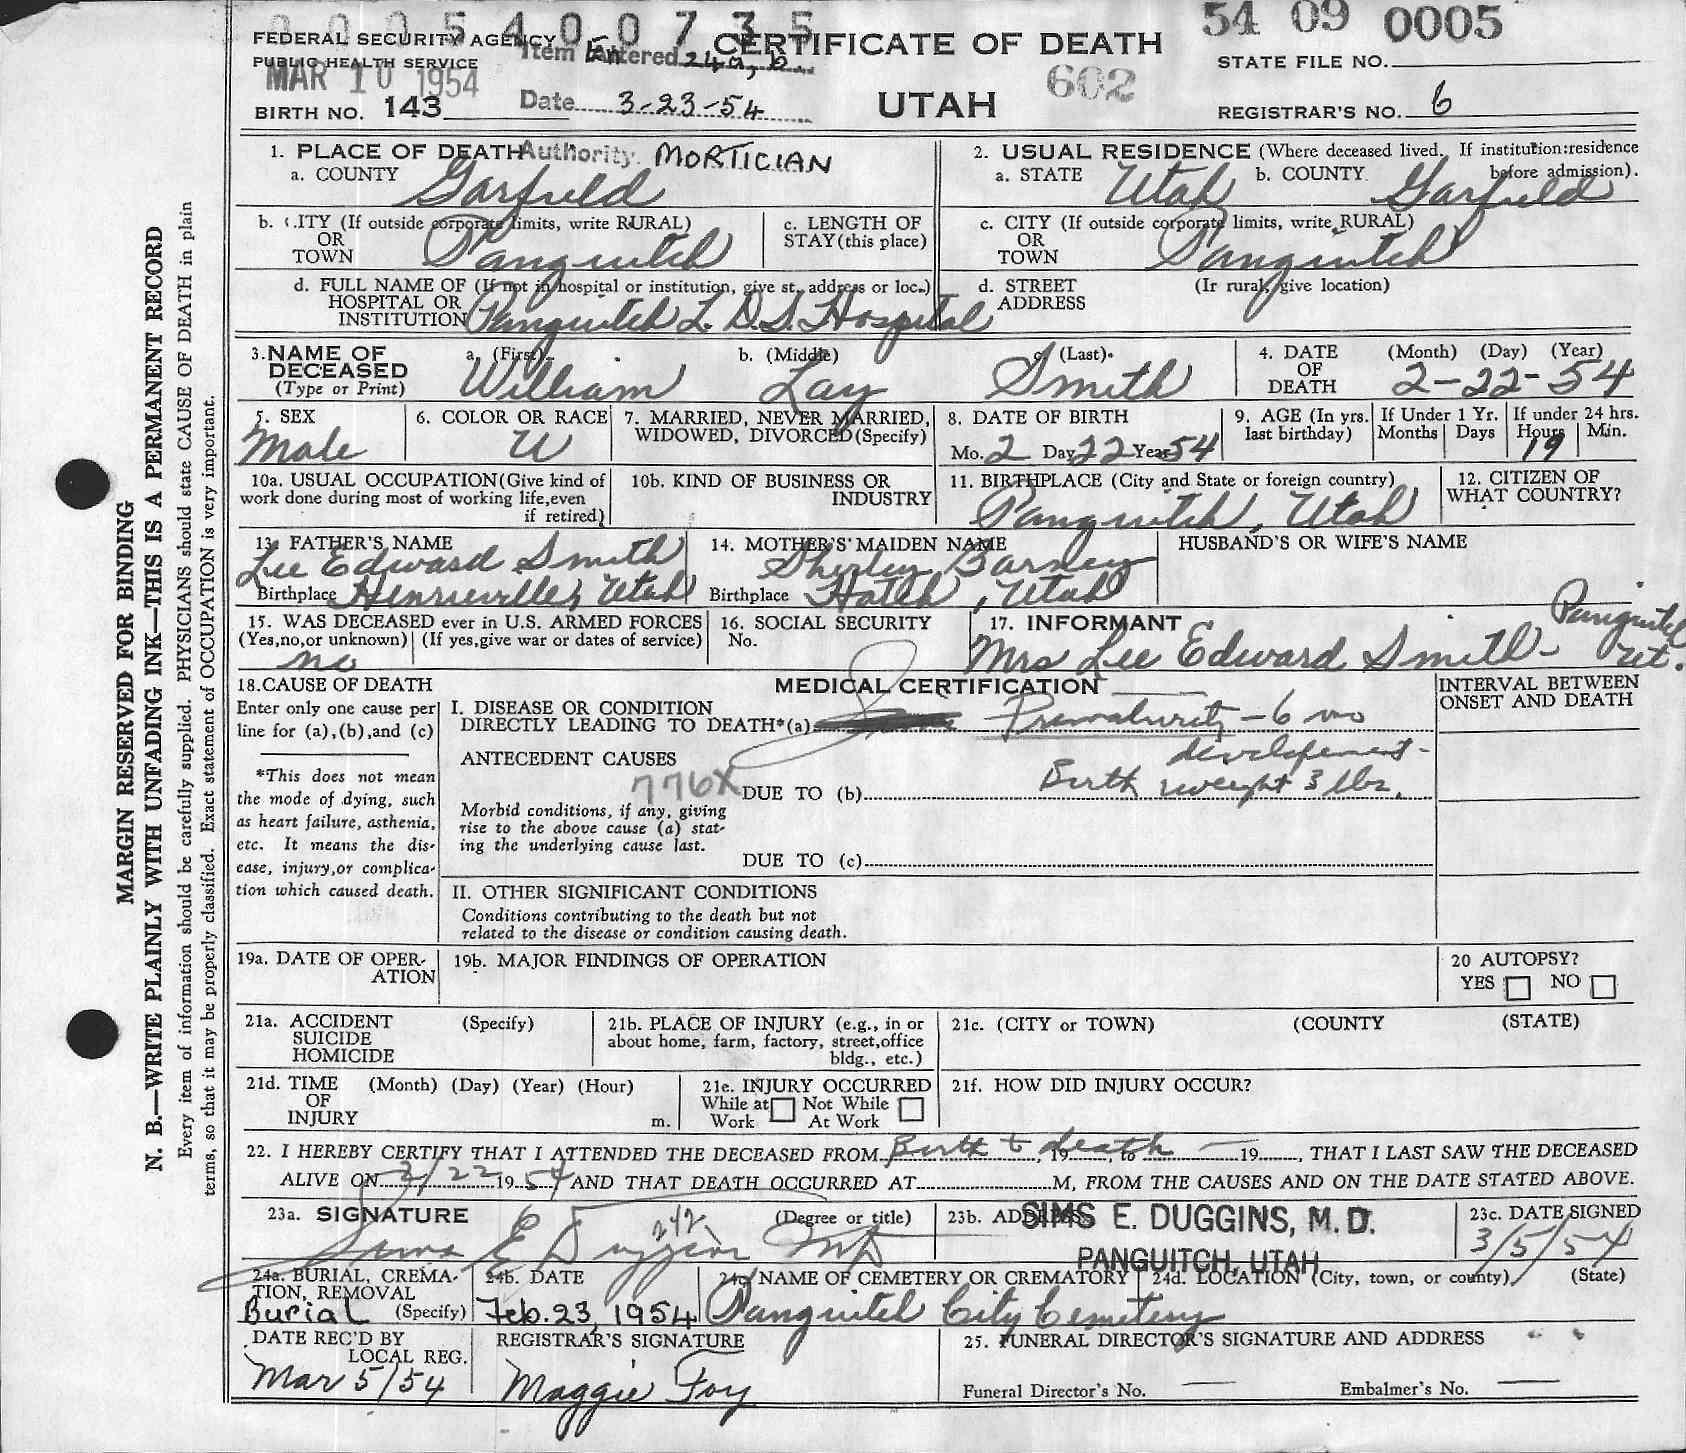 0005400735
54 09 0005
FEDERAL SECURITY AGENCY
PUBLIC HEALTH SERVICE
MAR 10 1954
BIRTH NO. 143
Item Entered 24a, b.
Date 3-23-54
Authority MORTICIAN
CERTIFICATE OF DEATH
UTAH
602
STATE FILE NO.
REGISTRAR'S NO. 6
1. PLACE OF DEATH
a. COUNTY Garfield
2. USUAL RESIDENCE (Where deceased lived. If institution:residence before admission).
a. STATE Utah b. COUNTY Garfield
b. CITY (If outside corporate limits, write RURAL)
OR
TOWN Panguitch
c. LENGTH OF
STAY(this place)
c. CITY (If outside corporate limits, write RURAL)
OR
TOWN Panguitch
d. FULL NAME OF (If not in hospital or institution, give st. address or loc.)
HOSPITAL OR
INSTITUTION Panguitch L.D.S. Hospital
d. STREET (If rural, give location)
ADDRESS
3. NAME OF DECEASED
(Type or Print)
a. (First) William
b. (Middle) Lay
c. (Last) Smith
4. DATE OF DEATH (Month) (Day) (Year)
2-22-54
5. SEX
Male
6. COLOR OR RACE
W
7. MARRIED, NEVER MARRIED,
WIDOWED, DIVORCED(Specify)
8. DATE OF BIRTH
Mo. 2 Day 22 Year 54
9. AGE (In yrs. last birthday)
If Under 1 Yr.
Months Days
If under 24 hrs.
Hours Min.
19
10a. USUAL OCCUPATION(Give kind of
work done during most of working life,even
if retired)
10b. KIND OF BUSINESS OR
INDUSTRY
11. BIRTHPLACE (City and State or foreign country)
Panguitch, Utah
12. CITIZEN OF
WHAT COUNTRY?
13. FATHER'S NAME
Lee Edward Smith
Birthplace Henrieville, Utah
14. MOTHER'S MAIDEN NAME
Shirley Barney
Birthplace Hatch, Utah
HUSBAND'S OR WIFE'S NAME
15. WAS DECEASED ever in U.S. ARMED FORCES
(Yes,no,or unknown) (If yes,give war or dates of service)
no
16. SOCIAL SECURITY
No.
17. INFORMANT
Mrs Lee Edward Smith - Panguitch Ut.
18. CAUSE OF DEATH
Enter only one cause per
line for (a),(b),and (c)
*This does not mean
the mode of dying, such
as heart failure, asthenia,
etc. It means the dis-
ease, injury,or complica-
tion which caused death.
MEDICAL CERTIFICATION
INTERVAL BETWEEN
ONSET AND DEATH
I. DISEASE OR CONDITION
DIRECTLY LEADING TO DEATH*(a) Prematurity - 6 mo
developement -
ANTECEDENT CAUSES
776X
DUE TO (b) Birth weight 3 lbs.
Morbid conditions, if any, giving
rise to the above cause (a) stat-
ing the underlying cause last.
DUE TO (c)
II. OTHER SIGNIFICANT CONDITIONS
Conditions contributing to the death but not
related to the disease or condition causing death.
19a. DATE OF OPER-
ATION
19b. MAJOR FINDINGS OF OPERATION
20 AUTOPSY?
YES NO
21a. ACCIDENT (Specify)
SUICIDE
HOMICIDE
21b. PLACE OF INJURY (e.g., in or
about home, farm, factory, street,office
bldg., etc.)
21c. (CITY or TOWN) (COUNTY (STATE)
21d. TIME (Month) (Day) (Year) (Hour)
OF
INJURY m.
21e. INJURY OCCURRED
While at Work Not While At Work
21f. HOW DID INJURY OCCUR?
22. I HEREBY CERTIFY THAT I ATTENDED THE DECEASED FROM Birth to death, 19, to 19, THAT I LAST SAW THE DECEASED
ALIVE ON 2/22 1954 AND THAT DEATH OCCURRED AT M, FROM THE CAUSES AND ON THE DATE STATED ABOVE.
23a. SIGNATURE (Degree or title)
Sims E Duggins MD
23b. ADDRESS
SIMS E. DUGGINS, M.D.
PANGUITCH, UTAH
23c. DATE SIGNED
3/5/54
24a. BURIAL, CREMA-
TION, REMOVAL
(Specify)
Burial
24b. DATE
Feb. 23, 1954
24c. NAME OF CEMETERY OR CREMATORY
Panguitch City Cemetery
24d. LOCATION (City, town, or county) (State)
DATE REC'D BY
LOCAL REG.
Mar 5/54
REGISTRAR'S SIGNATURE
Maggie Foy
25. FUNERAL DIRECTOR'S SIGNATURE AND ADDRESS
Funeral Director's No. —
Embalmer's No. —
MARGIN RESERVED FOR BINDING
N. B.—WRITE PLAINLY WITH UNFADING INK—THIS IS A PERMANENT RECORD
Every item of information should be carefully supplied. PHYSICIANS should state CAUSE OF DEATH in plain
terms, so that it may be properly classified. Exact statement of OCCUPATION is very important.